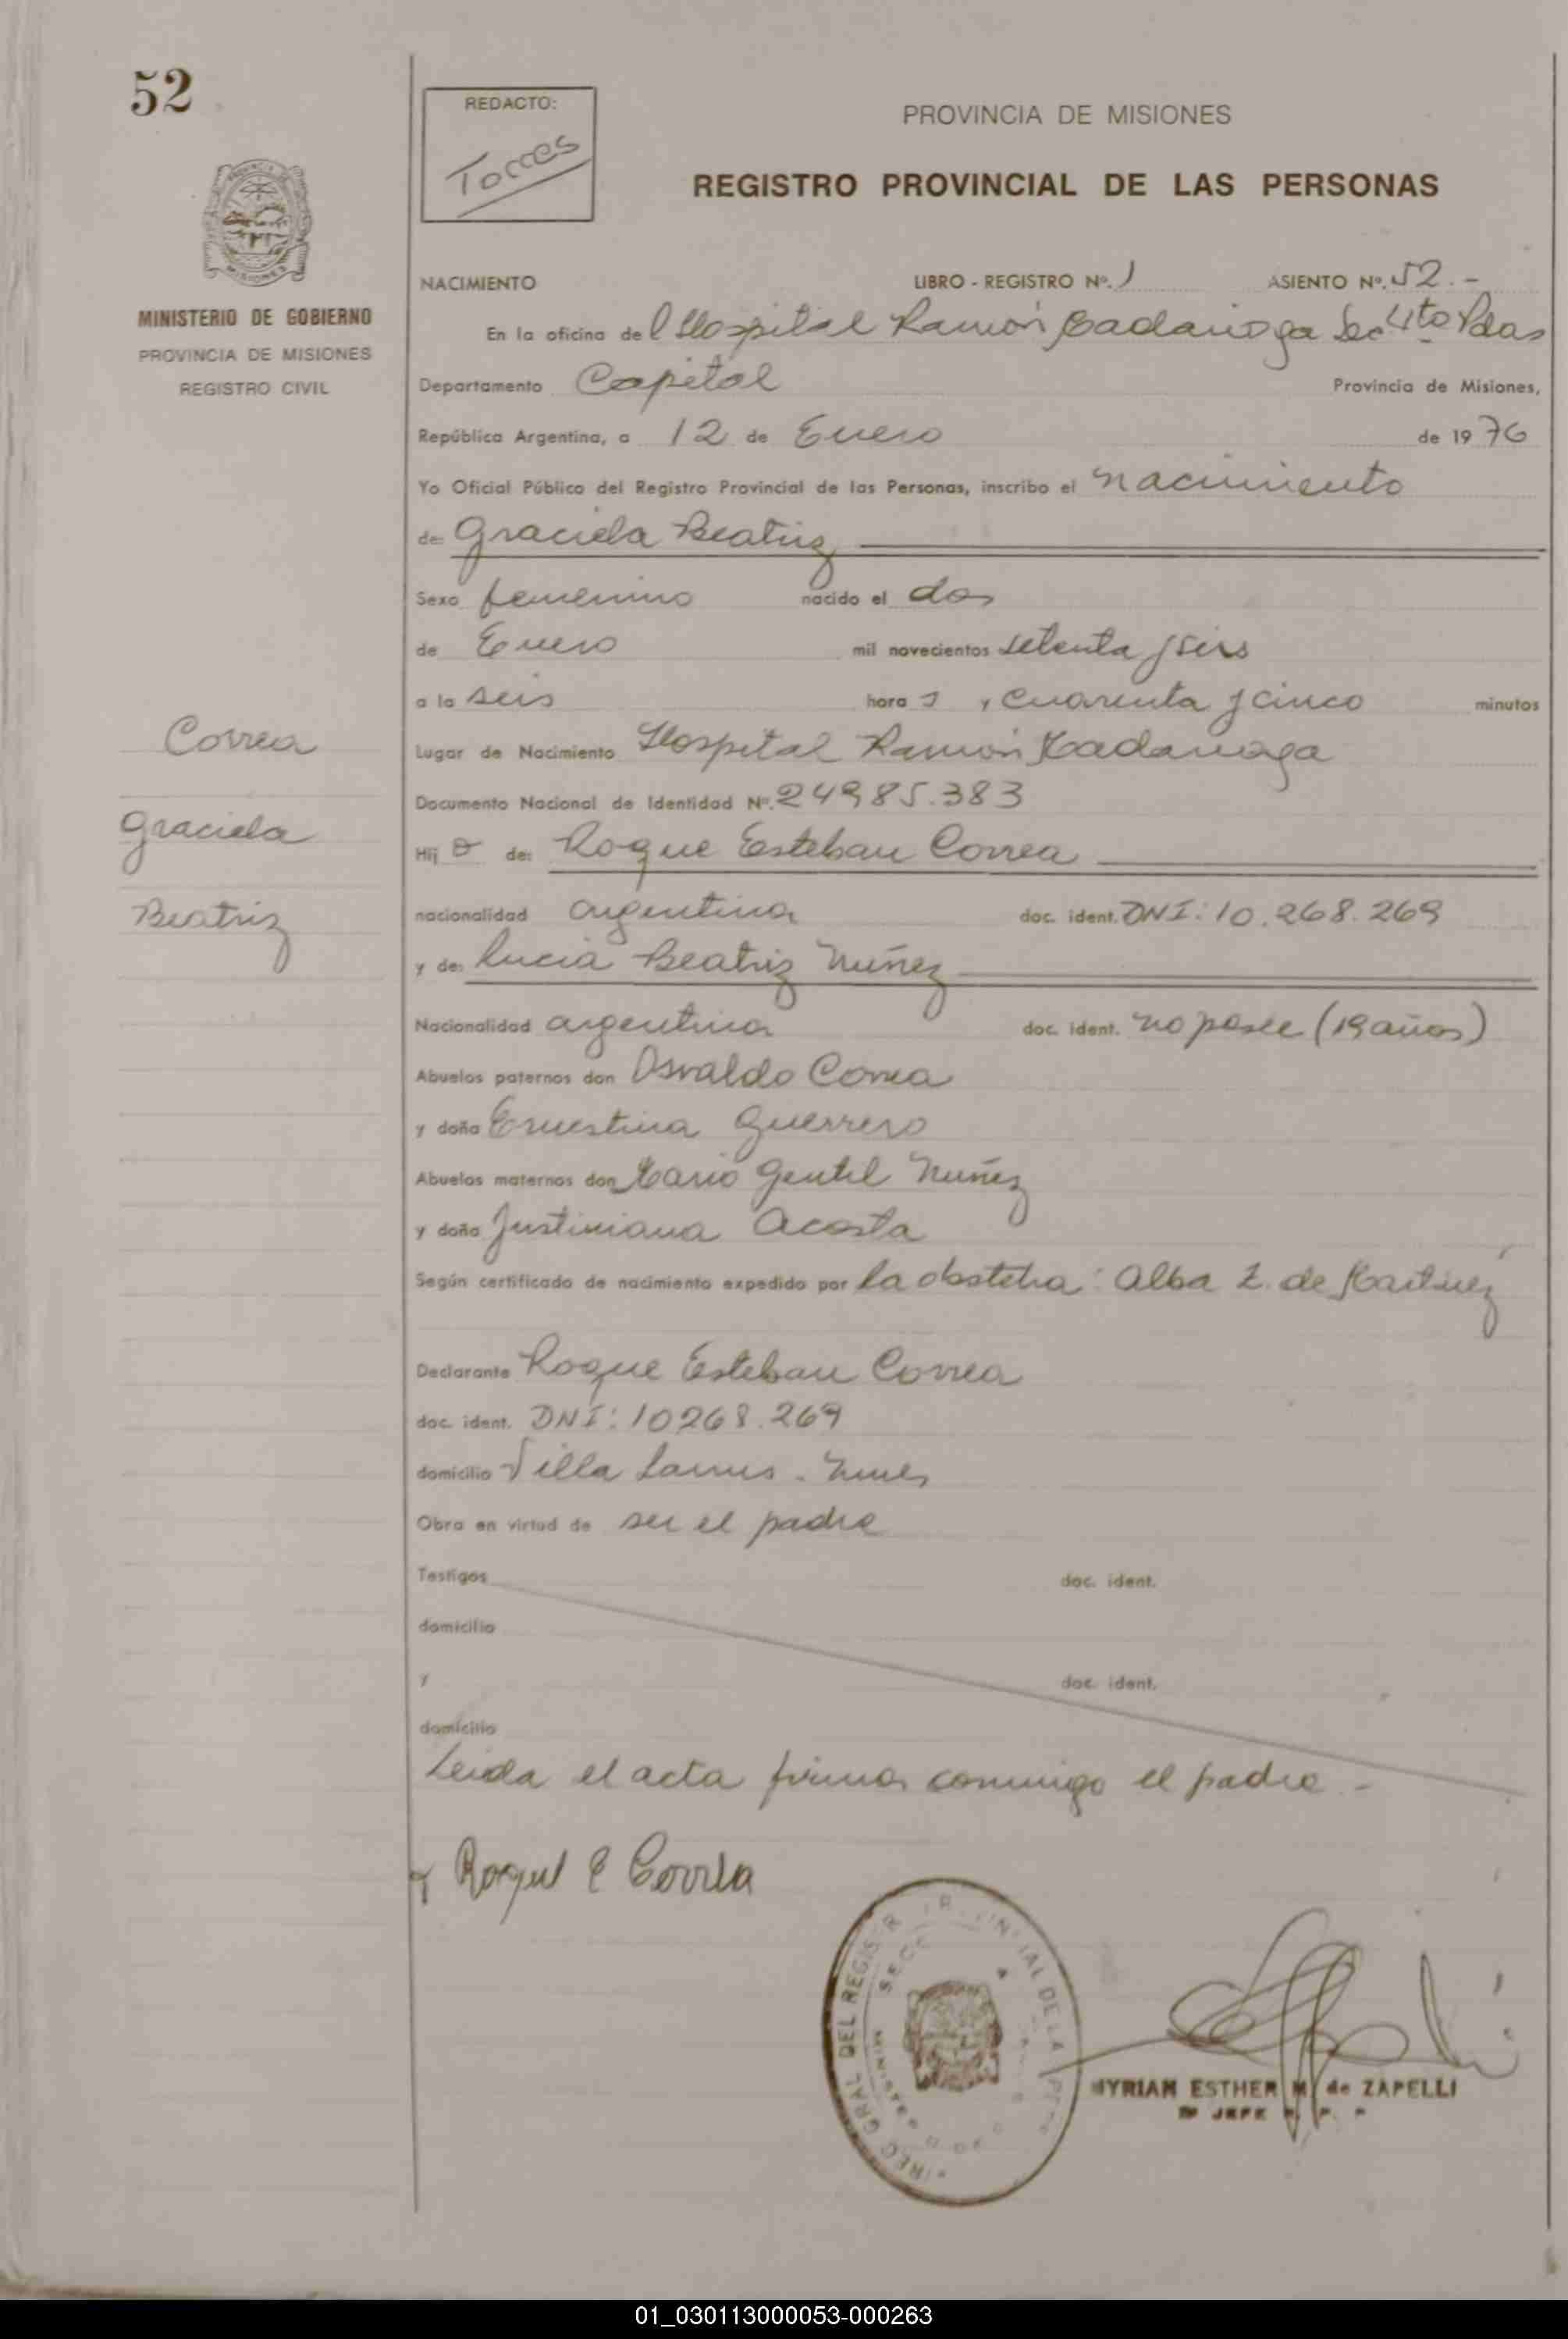 52
REDACTO:
Torres
PROVINCIA DE MISIONES
REGISTRO PROVINCIAL DE LAS PERSONAS
MISIONES
MINISTERIO DE GOBIERNO
PROVINCIA DE MISIONES
REGISTRO CIVIL
NACIMIENTO LIBRO - REGISTRO Nº. 1 ASIENTO Nº. 52.-
En la oficina del Hospital Ramón Madariaga Sec 4ta Pdas
Departamento Capital Provincia de Misiones,
República Argentina, a 12 de Enero de 1976
Yo Oficial Público del Registro Provincial de las Personas, inscribo el nacimiento
de: Graciela Beatriz
Sexo femenino nacido el dos
de Enero mil novecientos setenta y seis
a la seis hora s y cuarenta y cinco minutos
Lugar de Nacimiento Hospital Ramón Madariaga
Documento Nacional de Identidad Nº. 24985.383
Hij a de: Roque Esteban Correa
nacionalidad argentina doc. ident. DNI: 10.268.269
y de: Lucia Beatriz Nuñez
Nacionalidad argentina doc. ident. no posee (19 años)
Abuelos paternos don Osvaldo Correa
y doña Ernestina Guerrero
Abuelos maternos don Mario Gentil Nuñez
y doña Justiniana Acosta
Según certificado de nacimiento expedido por la obstetra: Alba Z. de Martinez
Declarante Roque Esteban Correa
doc. ident. DNI: 10268.269
domicilio Villa Lanus.
Obra en virtud de ser el padre
Testigos doc. ident.
domicilio
y doc. ident.
domicilio
Leida el acta firma conmigo el padre -
Roque E Correa
Correa
Graciela
Beatriz
GRAL DEL REGISTR
MYRIAN ESTHER M. de ZAPELLI
JEFE
01_030113000053-000263